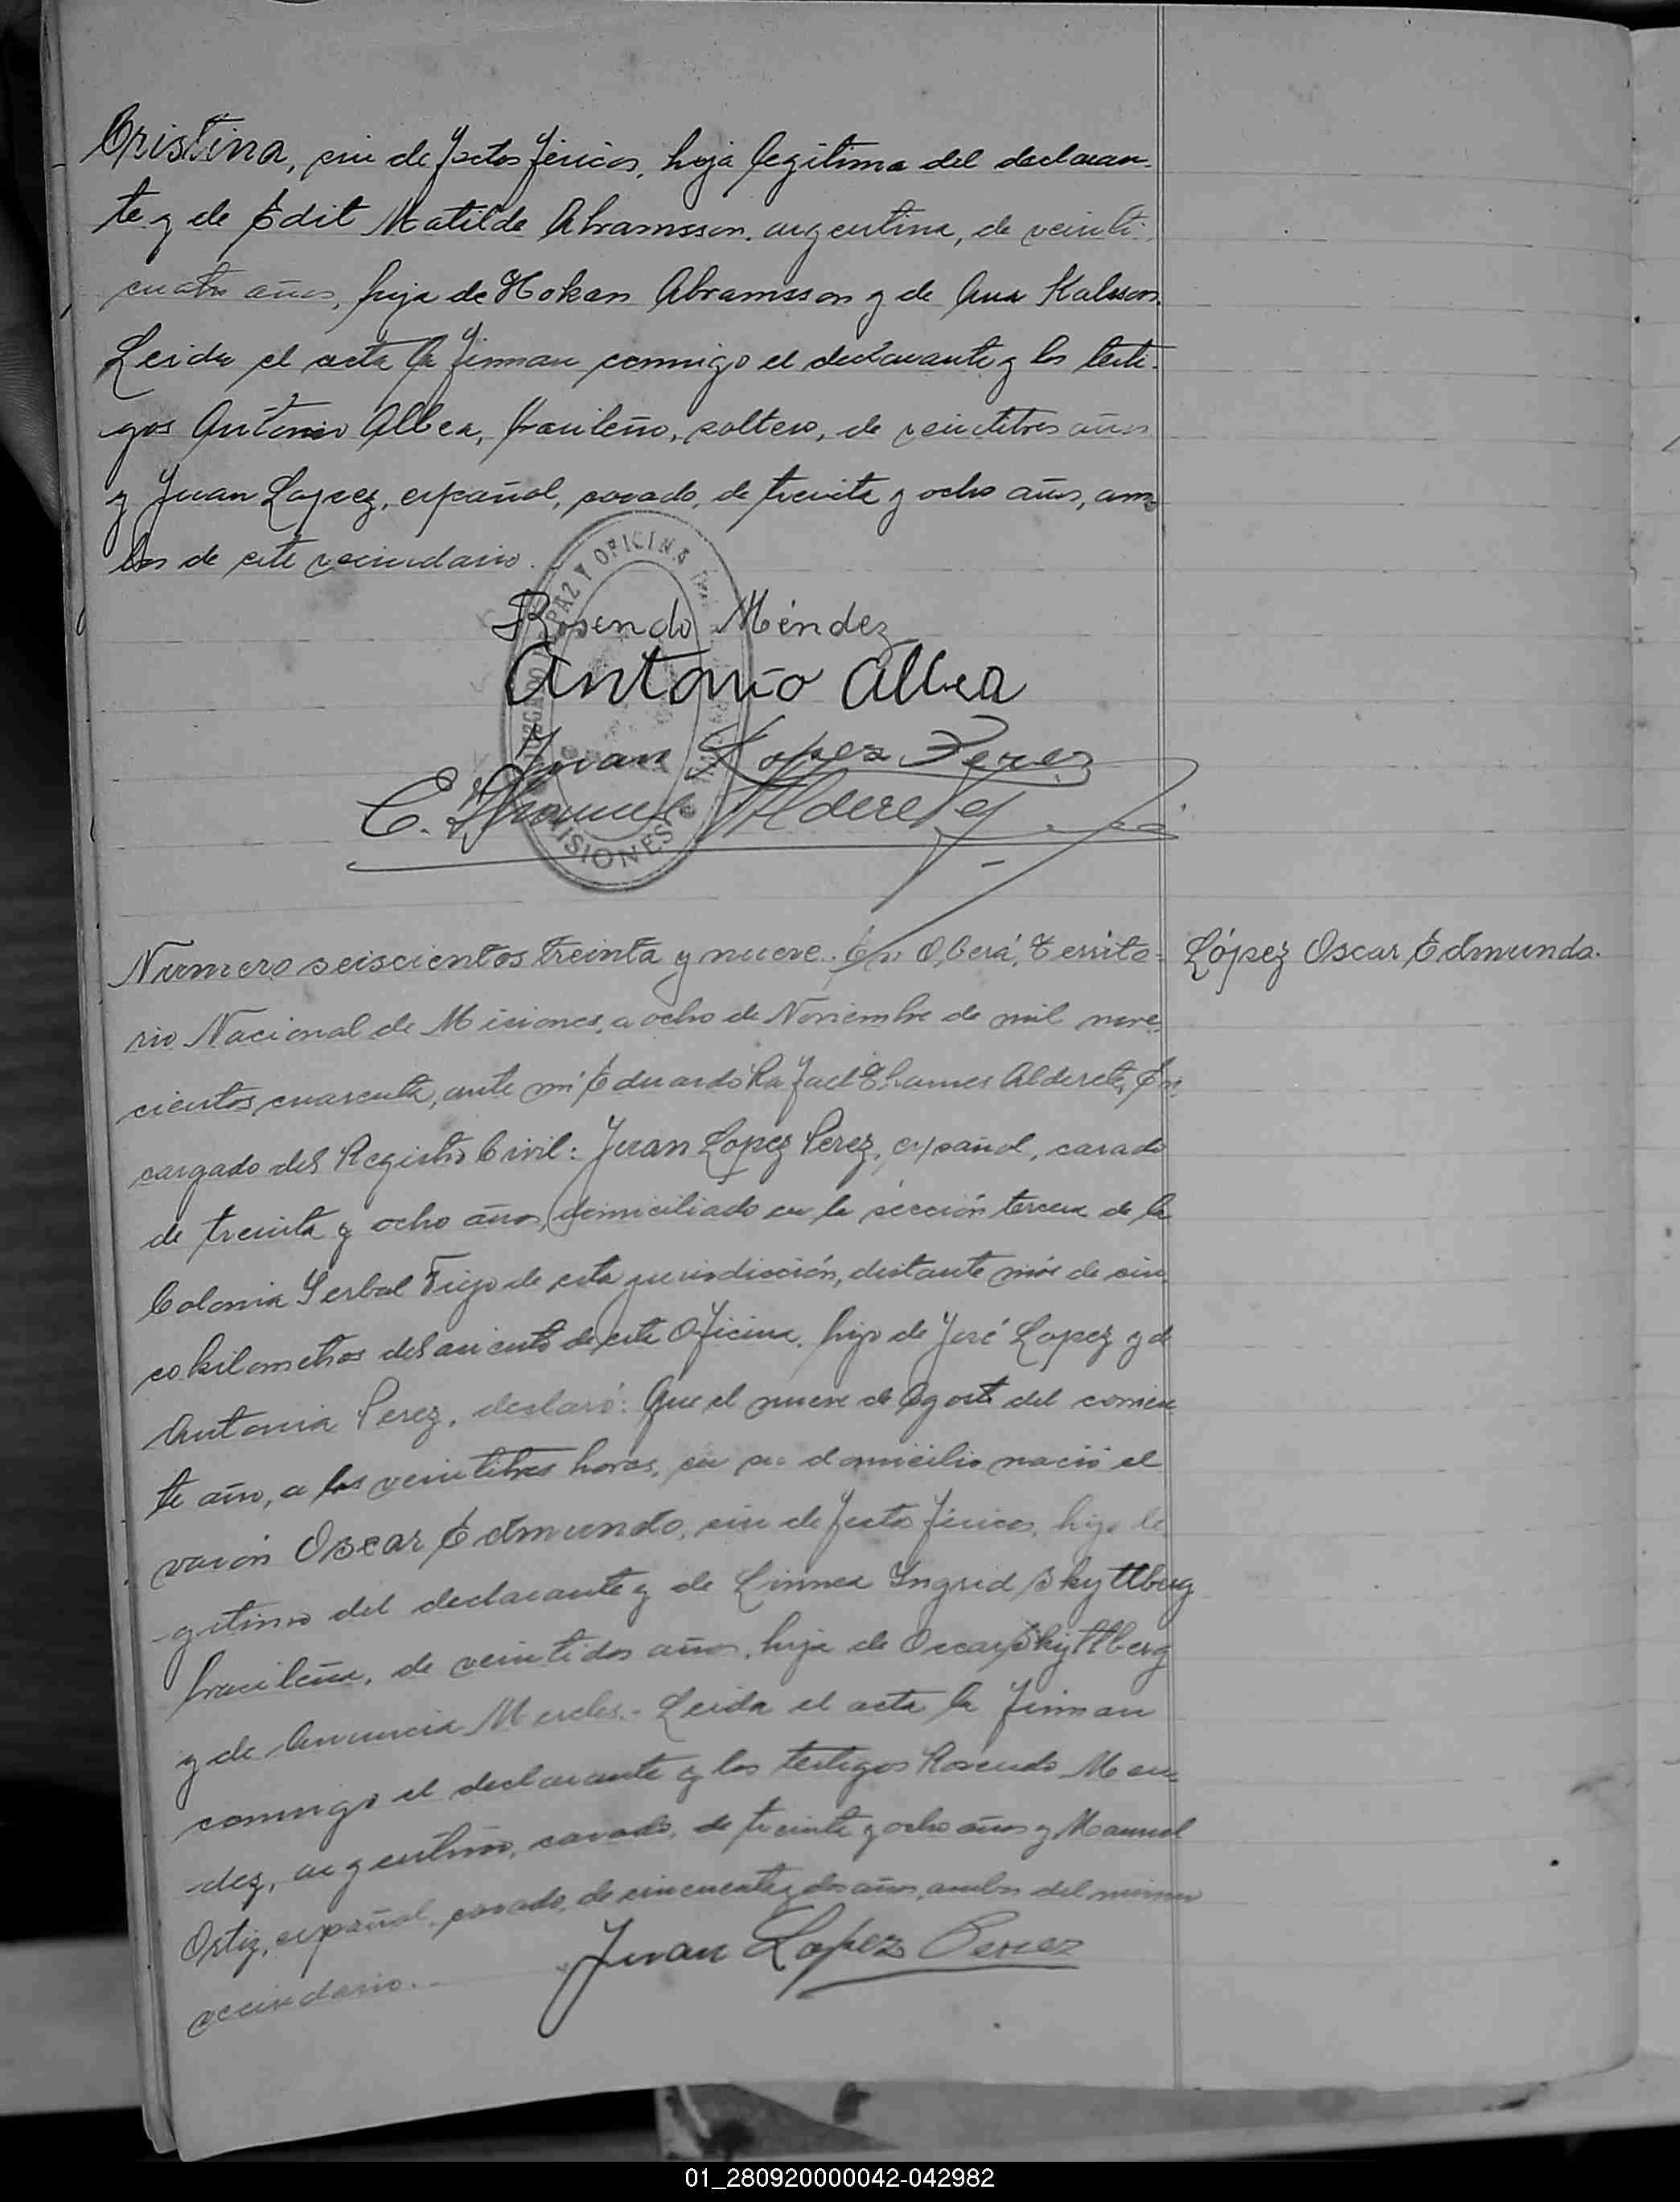 Cristina, sin defectos físicos, hija legítima del declaran-
te y de Edit Matilde Abramsson, argentina, de veinti-
cuatro años, hija de Hokan Abramsson y de Ana Kalsson.
Leida el acta la firman conmigo el declarante y los testi-
gos Antonio Albea, brasileño, soltero, de veintitres años
y Juan Lopez, español, casado, de treinta y ocho años, am-
bos de este vecindario.
JUZGADO PAZ Y OFICINA
MISIONES
Rosendo Méndez
Antonio Albea
Juan Lopez Perez
E. Thames Alderete
Numero seiscientos treinta y nueve. En Oberá, Territo-
rio Nacional de Misiones, a ocho de Noviembre de mil nove-
cientos cuarenta, ante mi Eduardo Rafael Thames Alderete, En-
cargado del Registro Civil: Juan Lopez Perez, español, casado
de treinta y ocho años, domiciliado en la sección tercera de la
Colonia Yerbal Viejo de esta jurisdicción, distante más de cin-
co kilometros del asiento de esta Oficina, hijo de José Lopez y de
Antonia Perez, declaró: Que el nueve de Agosto del corrien-
te año, a las veintitres horas, en su domicilio nació el
varón Oscar Edmundo, sin defectos físicos, hijo le-
gitimo del declarante y de Linnea Ingrid Skyttberg
brasileña, de veintidos años, hija de Oscar Skyttberg
y de Anuncia Mereles.- Leida el acta la firman
conmigo el declarante y los testigos Rosendo Men-
dez, argentino, casado, de treinta y ocho años y Manuel
Ortiz, español, casado, de cincuenta y dos años, ambos del mismo
vecindario.-
Juan Lopez Perez
López Oscar Edmundo.
01_280920000042-042982